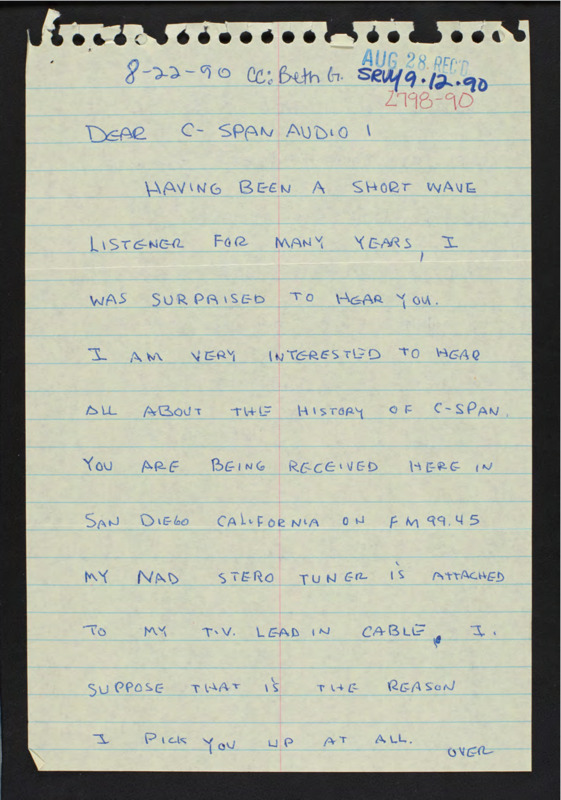 AUG 28 REC'D
8-22-90 CC: Beth G. SRVY 9.12.90
2798-90
DEAR C-SPAN AUDIO 1
HAVING BEEN A SHORT WAVE
LISTENER FOR MANY YEARS, I
WAS SURPRISED TO HEAR YOU.
I AM VERY INTERESTED TO HEAR
ALL ABOUT THE HISTORY OF C-SPAN.
YOU ARE BEING RECEIVED HERE IN
SAN DIEGO CALIFORNIA ON FM 99.45
MY NAD STERO TUNER IS ATTACHED
TO MY T.V. LEAD IN CABLE, I.
SUPPOSE THAT IS THE REASON
I PICK YOU UP AT ALL.
OVER